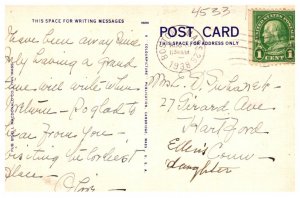 4533
THIS SPACE FOR WRITING MESSAGES
POST CARD
THIS SPACE FOR ADDRESS ONLY
1 CENT 1
Have been away since
July having a grand
time will write when
return - So glad to
hear from you.
visiting the loveliest
place -
27 Girard Ave
Hartford
Conn
Ellen's
daughter